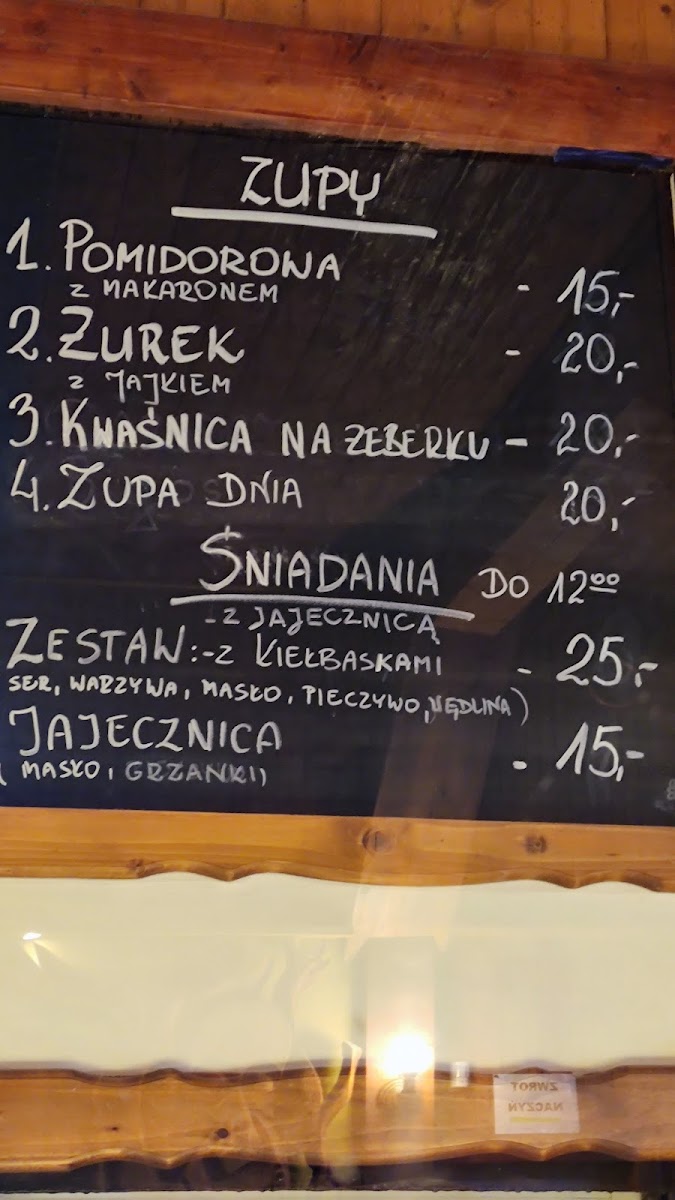 ZUPY
1. POMIDOROWA
Z MAKARONEM - 15,-
2. ŻUREK - 20,-
Z JAJKIEM
3. KWAŚNICA NA ŻEBERKU - 20,-
4. ZUPA DNIA 20,-
ŚNIADANIA DO 12⁰⁰
- Z JAJECZNICĄ
ZESTAW: - Z KIEŁBASKAMI - 25,-
SER, WARZYWA, MASŁO, PIECZYWO, WĘDLINA)
JAJECZNICA - 15,-
( MASŁO, GRZANKI)
ZWROT
NACZYŃ